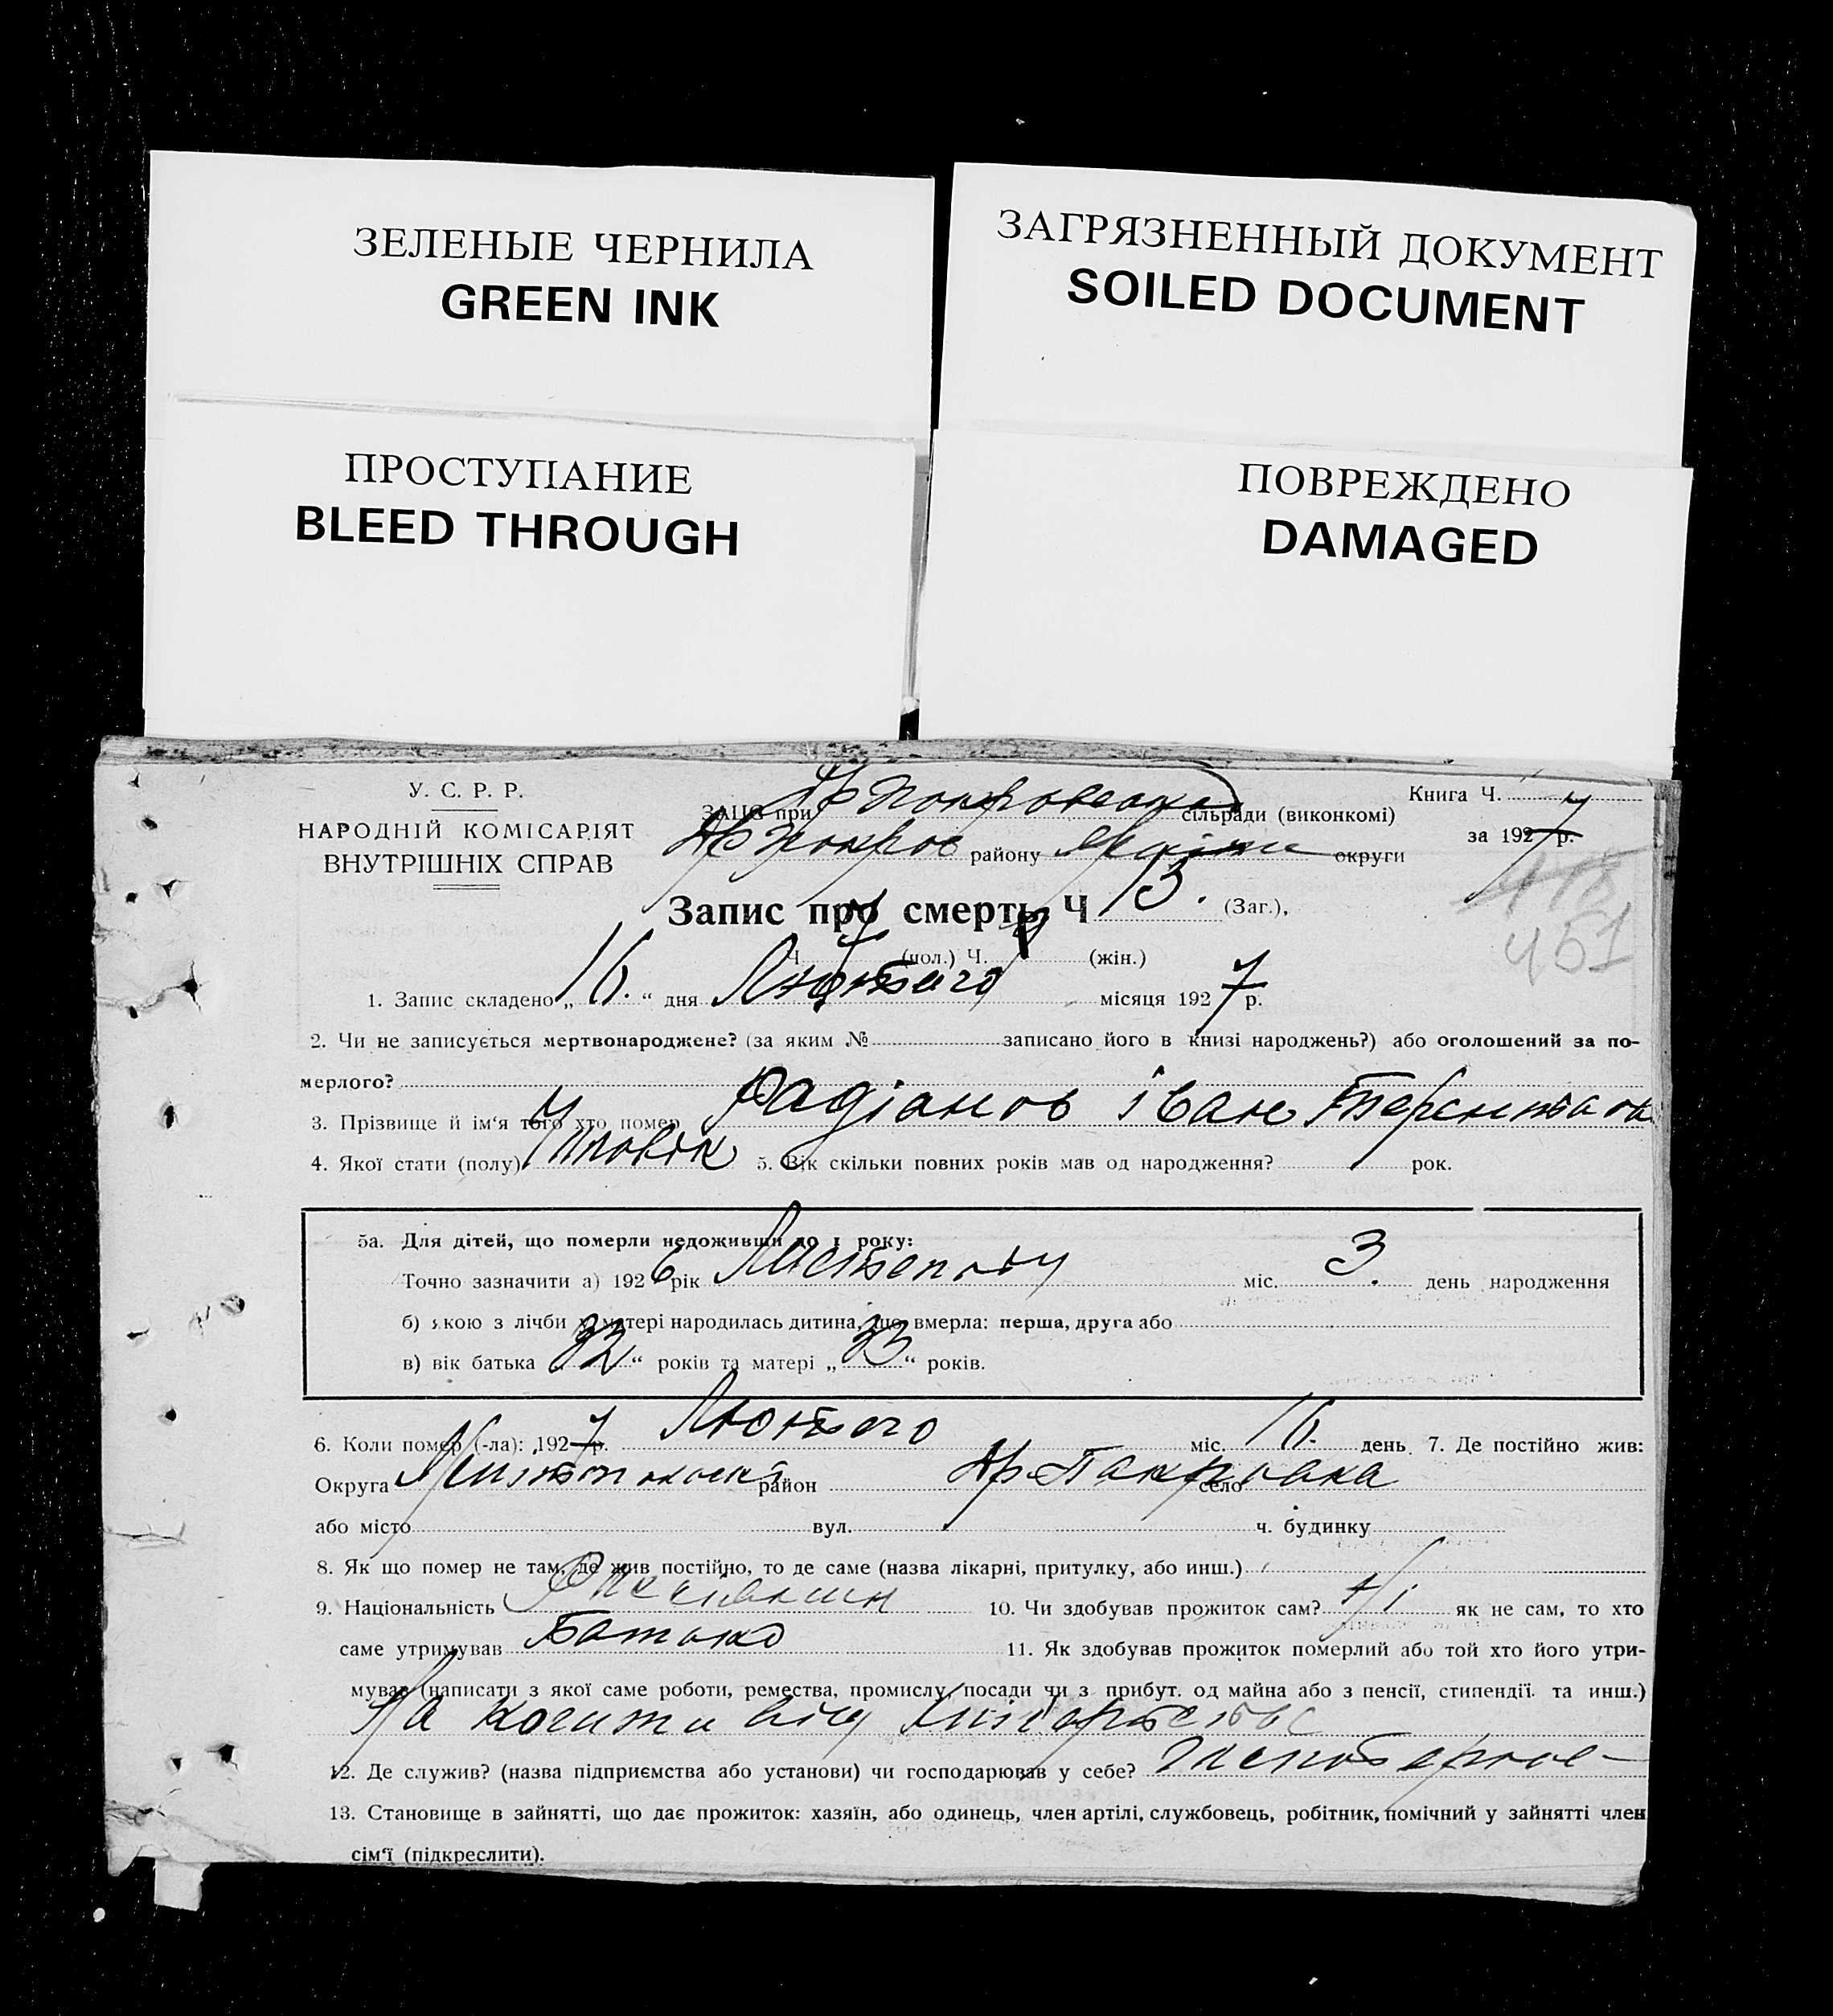 ЗЕЛЕНЫЕ ЧЕРНИЛА
GREEN INK
ЗАГРЯЗНЕННЫЙ ДОКУМЕНТ
SOILED DOCUMENT
ПРОСТУПАНИЕ
BLEED THROUGH
ПОВРЕЖДЕНО
DAMAGED
У. С. Р. Р.
НАРОДНІЙ КОМІСАРІЯТ
ВНУТРІШНІХ СПРАВ
ЗАЦС при сільради (виконкомі)
району округи
Книга Ч.
за 1927 р.
Запис про смерть Ч 13. (Заг.),
418
451
Ч. (пол.) Ч. (жін.)
1. Запис складено „16.“ дня Лютого місяця 1927 р.
2. Чи не записується мертвонароджене? (за яким № записано його в книзі народжень?) або оголошений за по-
мерлого?
3. Прізвище й ім'я того хто помер Радіонов іван
4. Якої стати (полу) Чоловік 5. Вік скільки повних років мав од народження? рок.
5а. Для дітей, що померли недоживши до 1 року:
Точно зазначити а) 1926 рік Листопаду міс. 3. день народження
б) якою з лічби у матері народилась дитина, що вмерла: перша, друга або
в) вік батька „32“ років та матері „33“ років.
6. Коли помер (-ла): 1927 р. Лютого міс. 16. день 7. Де постійно жив:
Округа район село
або місто вул. ч. будинку
8. Як що помер не там, де жив постійно, то де саме (назва лікарні, притулку, або инш.)
9. Національність 10. Чи здобував прожиток сам? Ні як не сам, то хто
саме утримував Батько 11. Як здобував прожиток померлий або той хто його утри-
мував (написати з якої саме роботи, ремества, промислу, посади чи з прибут. од майна або з пенсії, стипендії. та инш.)
На кошти від
12. Де служив? (назва підприємства або установи) чи господарював у себе?
13. Становище в зайнятті, що дає прожиток: хазяїн, або одинець, член артілі, службовець, робітник, помічний у зайнятті член
сім'ї (підкреслити).